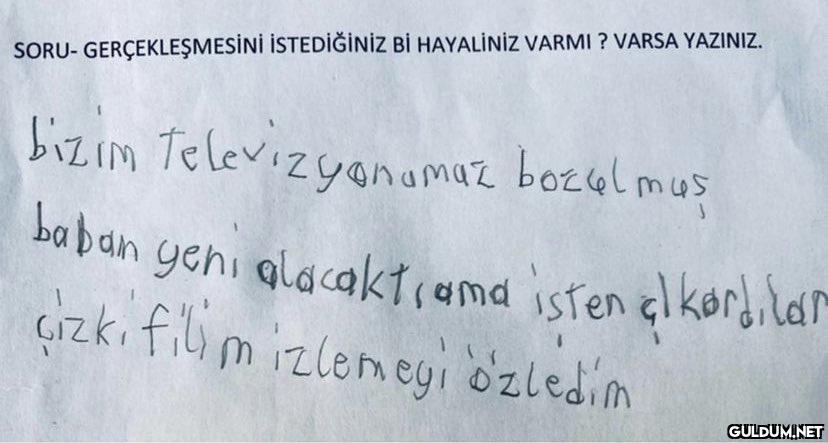 SORU- GERÇEKLEŞMESİNİ İSTEDİĞİNİZ Bİ HAYALİNİZ VARMI ? VARSA YAZINIZ.
bizim Televizyonumuz bozulmuş
baban yeni alacaktı ama işten çıkardılar
çizki filim izlemeyi özledim
GULDUM.NET